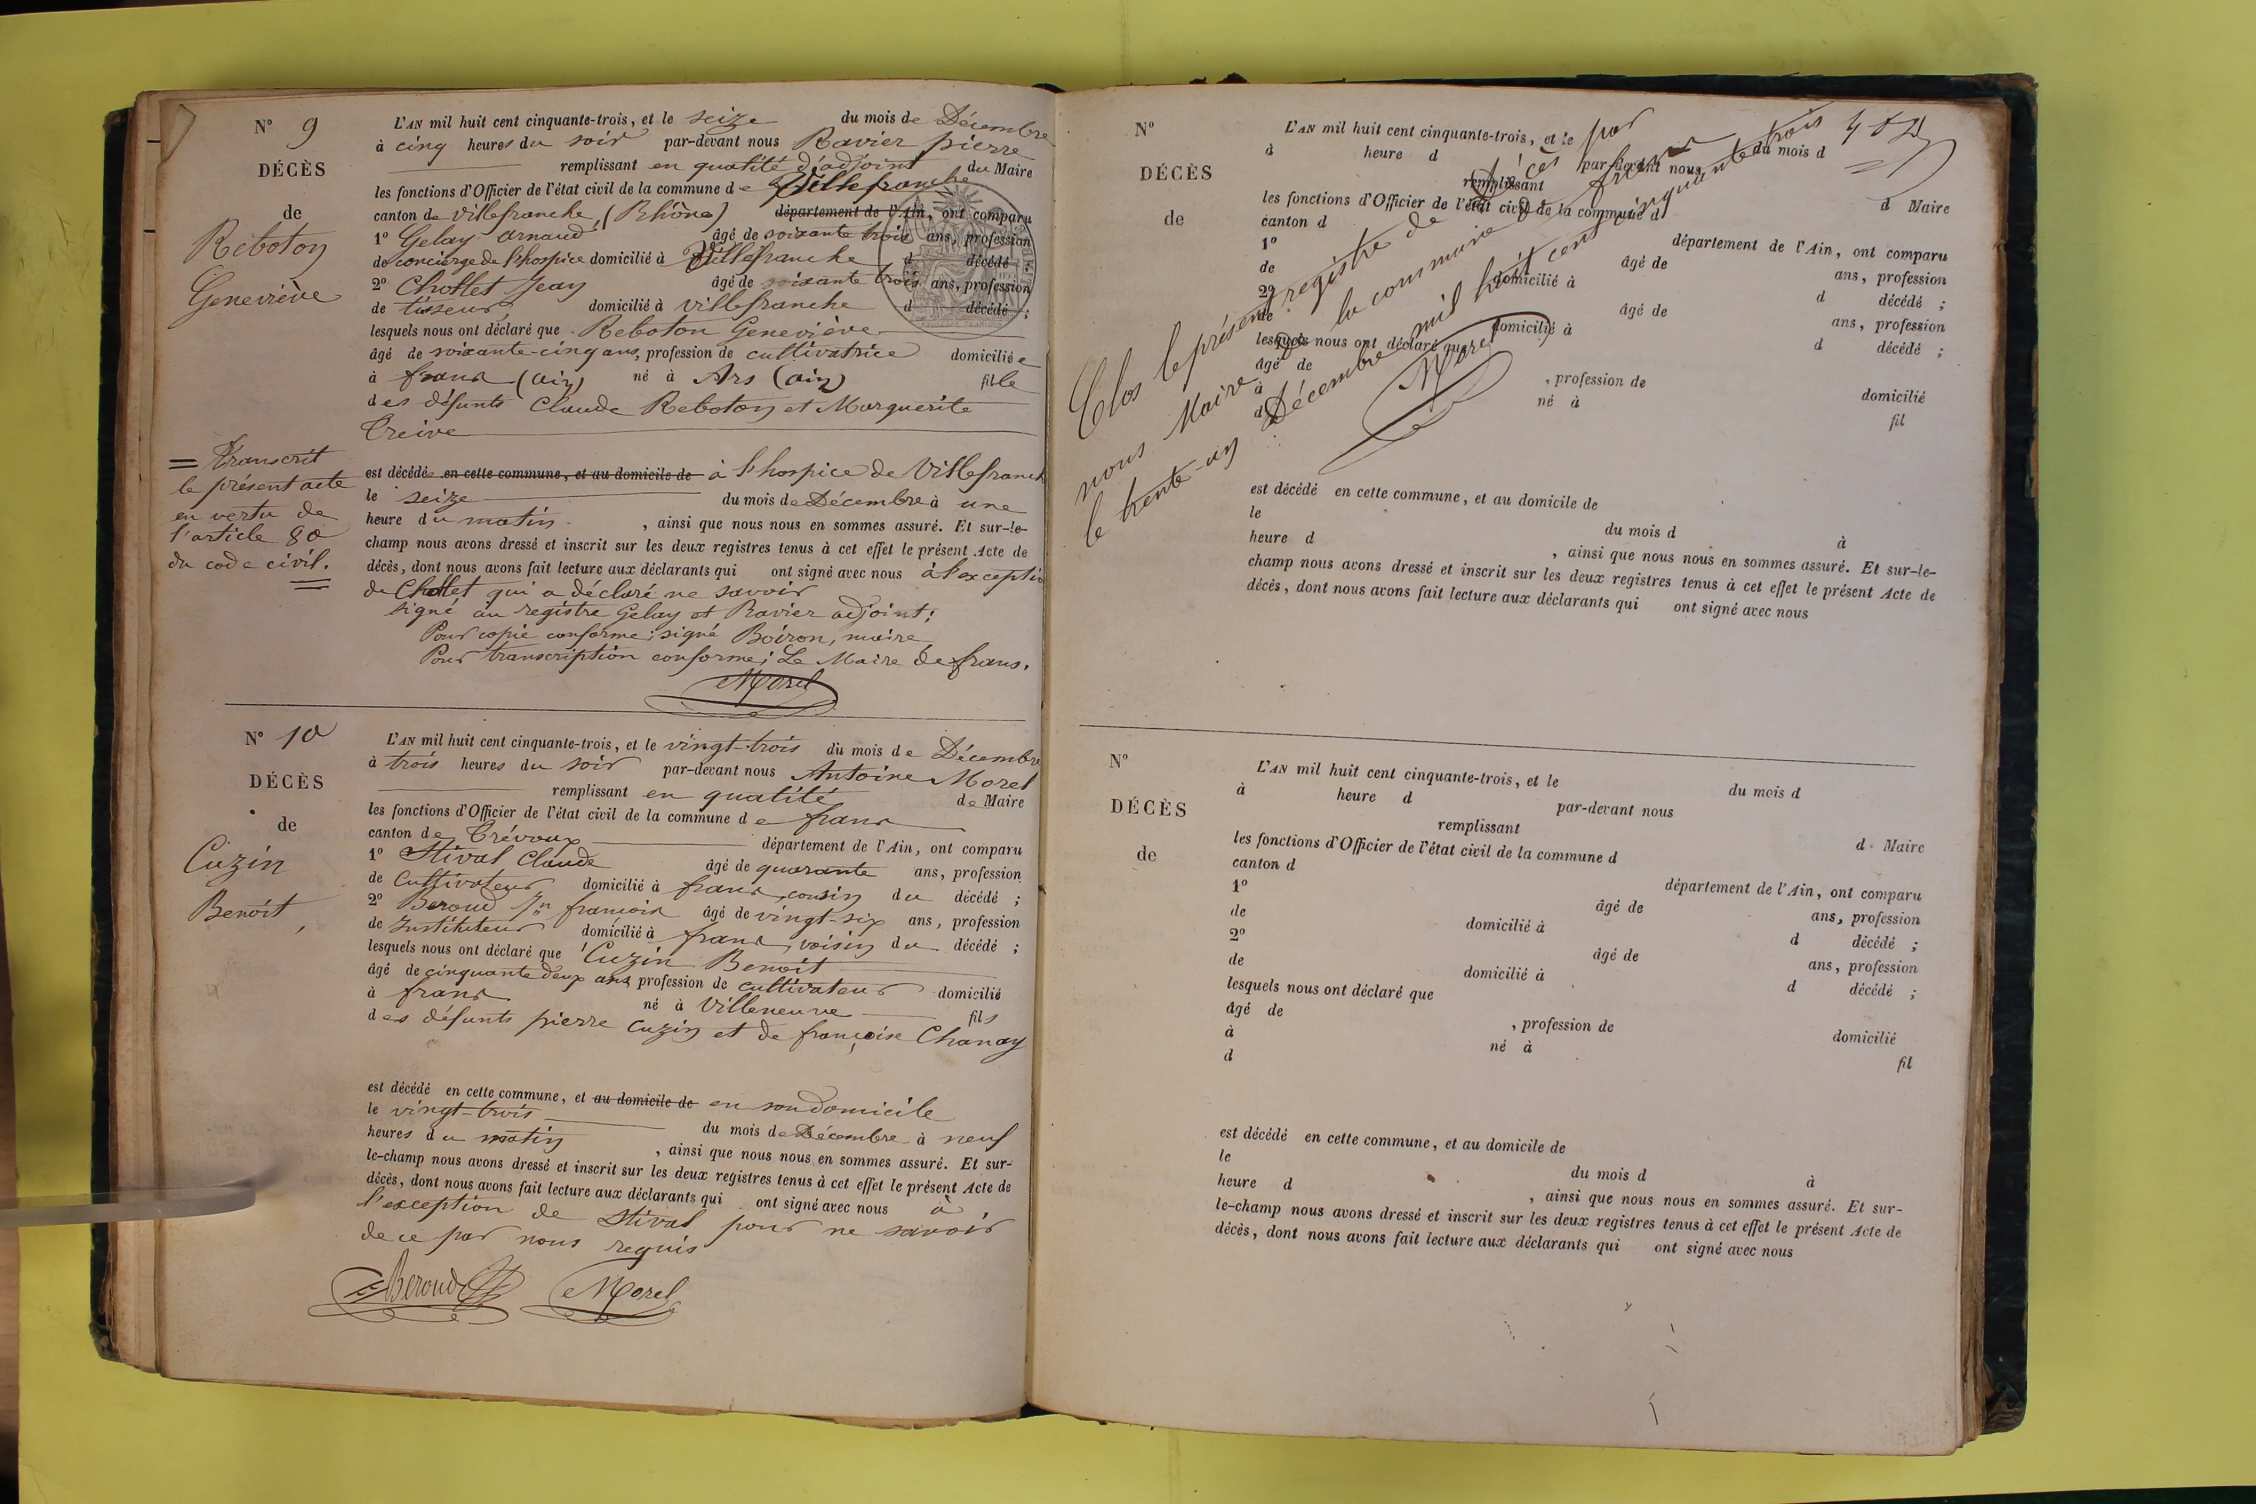 N° 9
DÉCÈS
de
Reboton
Geneviève
L'AN mil huit cent cinquante-trois, et le seize du mois de Décembre
à cinq heures du soir par-devant nous Ravier pierre
remplissant en qualité d'adjoint du Maire
les fonctions d'Officier de l'état civil de la commune de Villefranche
canton de Villefranche, (Rhône) département de l'Ain, ont comparu
1° Gelay Arnaud âgé de soixante trois ans, profession
de concierge de l'hospice domicilié à Villefranche d décédé
2° Chollet Jean âgé de soixante trois ans, profession
de tisseur domicilié à Villefranche d décédé ;
lesquels nous ont déclaré que Reboton Geneviève
âgé de soixante-cinq ans, profession de cultivatrice domiciliée
à frans (ain) né à Ars (ain) fille
des défunts Claude Reboton et Marguerite
Treive
= Transcrit
le présent acte
en vertu de
l'article 80
du code civil.
est décédée en cette commune, et au domicile de à l'hospice de Villefranche
le seize du mois de Décembre à une
heure du matin , ainsi que nous nous en sommes assuré. Et sur-le-
champ nous avons dressé et inscrit sur les deux registres tenus à cet effet le présent Acte de
décès, dont nous avons fait lecture aux déclarants qui ont signé avec nous à l'exception
de Chollet qui a déclaré ne savoir
signé au registre Gelay et Ravier adjoint;
Pour copie conforme; signé Boiron, maire
Pour transcription conforme; Le Maire de frans.
Morel
N° 10
DÉCÈS
de
Cuzin
Benoit,
L'AN mil huit cent cinquante-trois, et le vingt-trois du mois de Décembre
à trois heures du soir par-devant nous Antoine Morel
remplissant en qualité de Maire
les fonctions d'Officier de l'état civil de la commune de frans
canton de Trévoux département de l'Ain, ont comparu
1° Stival Claude âgé de quarante ans, profession
de Cultivateur domicilié à frans, cousin du décédé ;
2° Beroud Jn françois âgé de vingt-six ans, profession
de Instituteur domicilié à frans, voisin du décédé ;
lesquels nous ont déclaré que Cuzin Benoit
âgé de cinquante deux ans profession de cultivateur domicilié
à frans né à Villeneuve fils
des défunts pierre Cuzin et de françoise Chanay
est décédé en cette commune, et au domicile de en son domicile
le vingt-trois du mois de Décembre à neuf
heures du matin , ainsi que nous nous en sommes assuré. Et sur-
le-champ nous avons dressé et inscrit sur les deux registres tenus à cet effet le présent Acte de
décès, dont nous avons fait lecture aux déclarants qui ont signé avec nous à
l'exception de Stival pour ne savoir
de ce par nous requis
Beroud Morel
N°
DÉCÈS
de
L'AN mil huit cent cinquante-trois, et le du mois d
à heure d par-devant nous
remplissant d Maire
les fonctions d'Officier de l'état civil de la commune d
canton d département de l'Ain, ont comparu
1° âgé de ans, profession
de domicilié à d décédé ;
2° âgé de ans, profession
de domicilié à d décédé ;
lesquels nous ont déclaré que
âgé de , profession de domicilié
à né à fil
d
Clos le présent registre de Décès par
nous Maire de la commune de frans
le trente-un Décembre mil huit cent cinquante trois
Morel
est décédé en cette commune, et au domicile de
le du mois d à
heure d , ainsi que nous nous en sommes assuré. Et sur-le-
champ nous avons dressé et inscrit sur les deux registres tenus à cet effet le présent Acte de
décès, dont nous avons fait lecture aux déclarants qui ont signé avec nous
N°
DÉCÈS
de
L'AN mil huit cent cinquante-trois, et le du mois d
à heure d par-devant nous
remplissant d Maire
les fonctions d'Officier de l'état civil de la commune d
canton d département de l'Ain, ont comparu
1° âgé de ans, profession
de domicilié à d décédé ;
2° âgé de ans, profession
de domicilié à d décédé ;
lesquels nous ont déclaré que
âgé de , profession de domicilié
à né à fil
d
est décédé en cette commune, et au domicile de
le du mois d à
heure d , ainsi que nous nous en sommes assuré. Et sur-
le-champ nous avons dressé et inscrit sur les deux registres tenus à cet effet le présent Acte de
décès, dont nous avons fait lecture aux déclarants qui ont signé avec nous